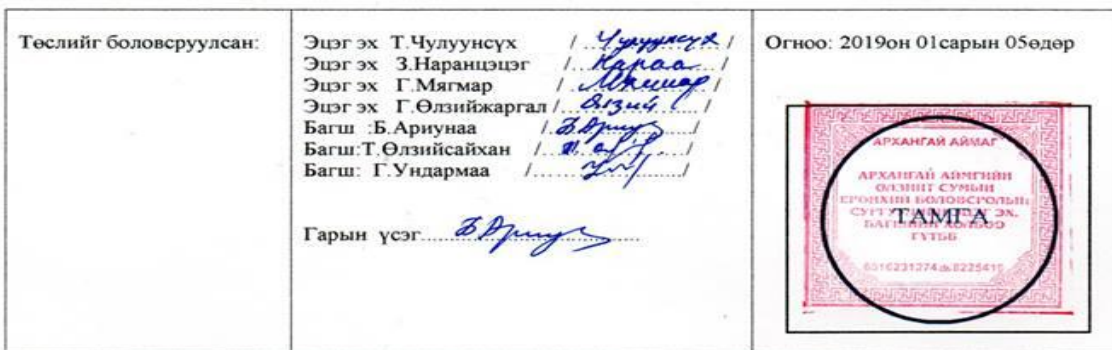 Төслийг боловсруулсан:
Эцэг эх Т.Чулуунсүх / Чулуунсүх /
Эцэг эх З.Наранцэцэг / Нараа /
Эцэг эх Г.Мягмар / Мягмар /
Эцэг эх Г.Өлзийжаргал / Өлзий /
Багш :Б.Ариунаа / Б.Ариун /
Багш:Т.Өлзийсайхан / /
Багш: Г.Ундармаа / /
Гарын үсэг Б.Ариун
Огноо: 2019он 01сарын 05өдөр
АРХАНГАЙ АЙМАГ
АРХАНГАЙ АЙМГИЙН
ӨЛЗИЙТ СУМЫН
ЕРӨНХИЙ БОЛОВСРОЛЫН
ТАМГА
ГҮТББ